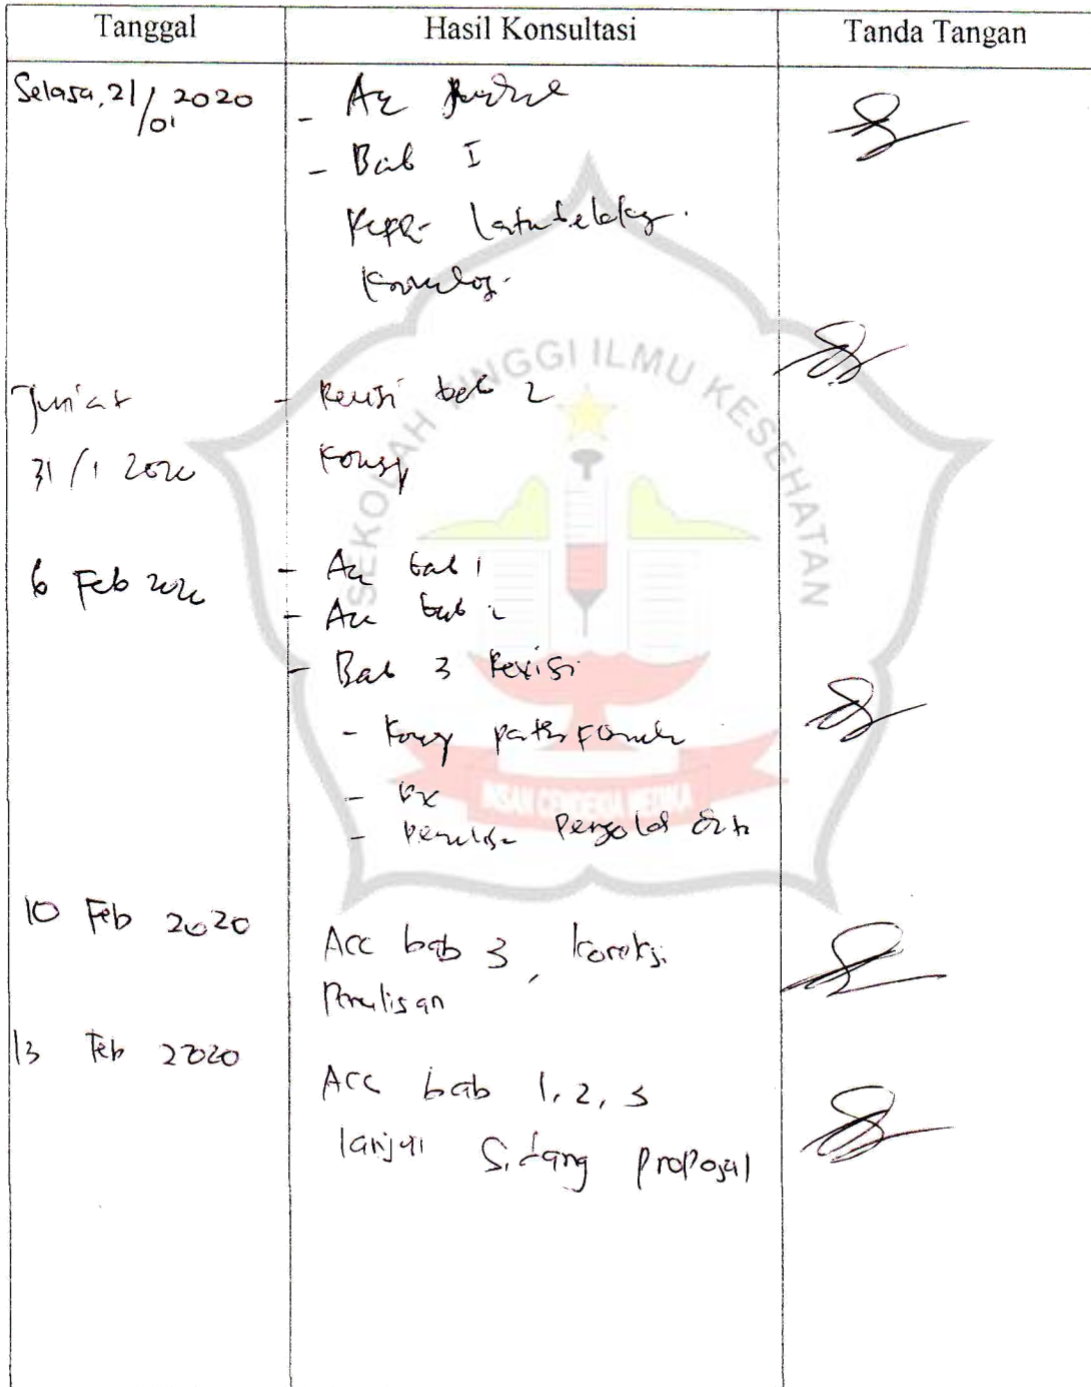 Tanggal Hasil Konsultasi Tanda Tangan
Selasa, 21/01 2020
- Acc
- Bab I
latar belakang.
Jum'at - Revisi bab 2
31/1 2020 Konsep
6 Feb 2020 - Acc bab 1
- Acc bab 2
- Bab 3 Revisi
- Konsep
- Penulisan
10 Feb 2020
Acc bab 3, koreksi
Penulisan
13 Feb 22020
Acc bab 1, 2, 3
lanjut Sidang proposal
SEKOLAH TINGGI ILMU KESEHATAN
INSAN CENDEKIA MEDIKA